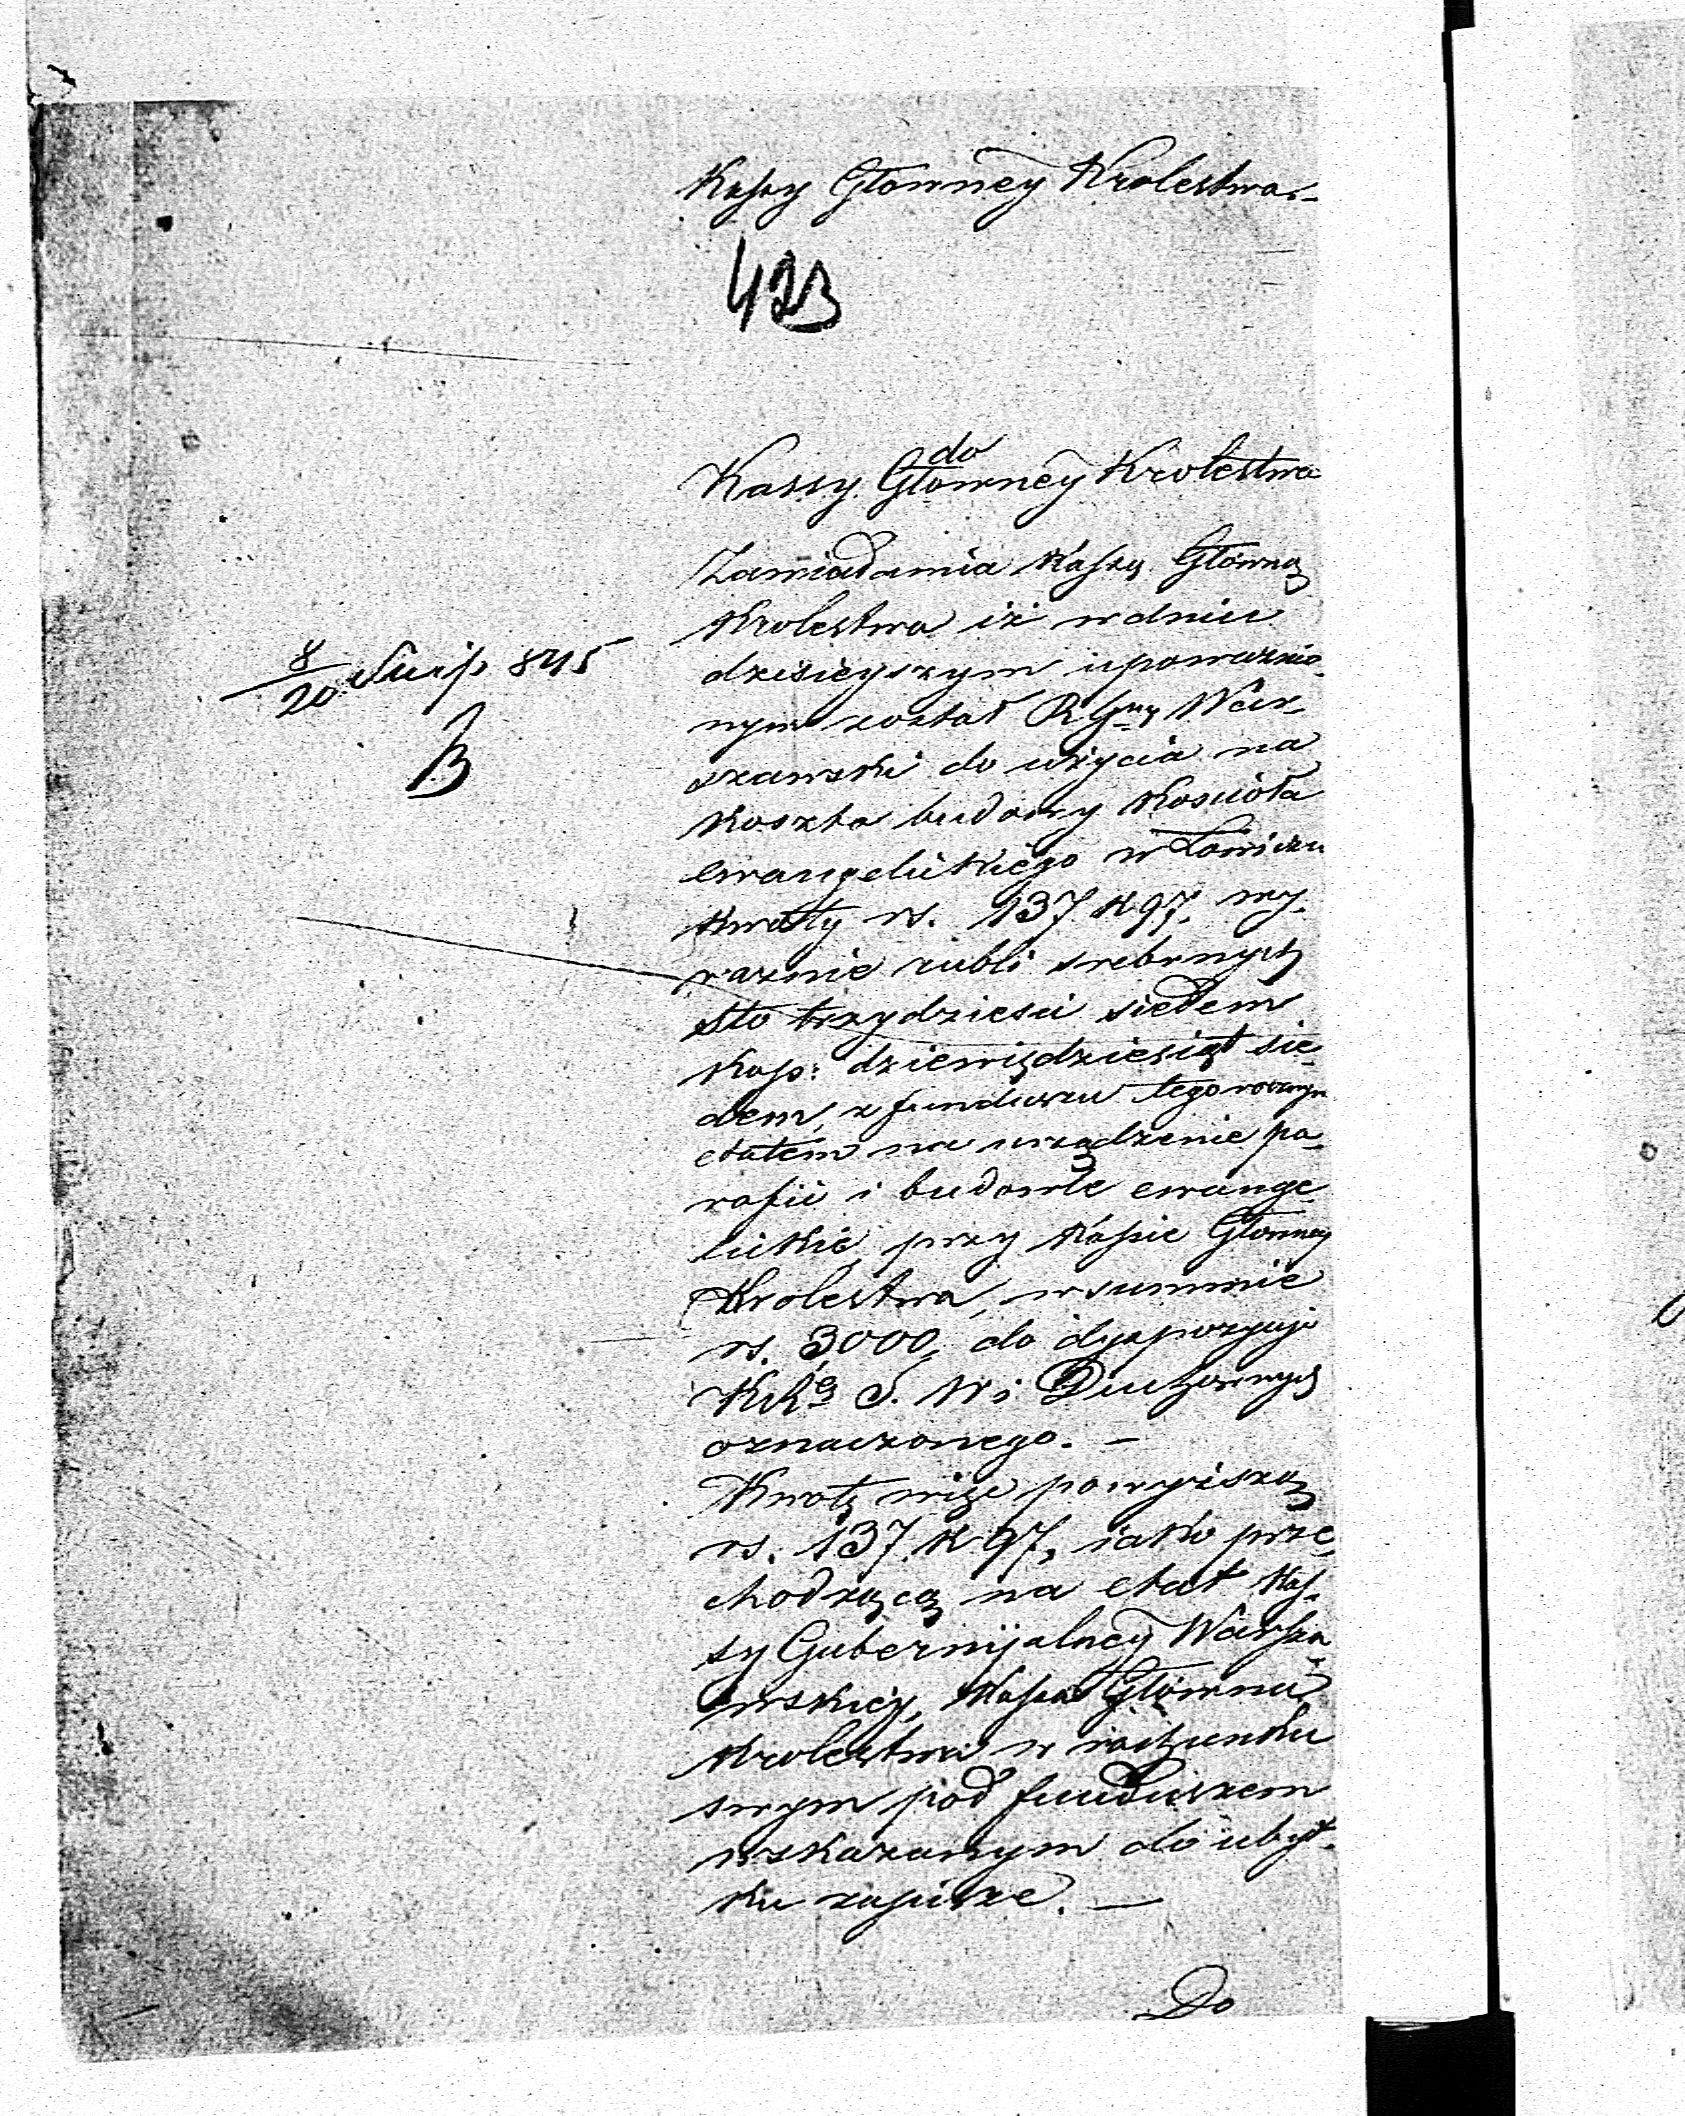 Kassy Głowney Krolestwa.-
423
do
Kassy Głowney Krolestwa
Zawiadamia Kassę Główną
Krolestwa iż w dniu
8/20 Sierp 845
dzisieyszym upoważnio-
nym został RGny War-
B
szawski do użycia na
koszta budowy Kościoła
ewangelickiego w Łowiczu
kwoty rs. 137 k 97. wy-
raznie rubli srebrnych
sto trzydzieści siedem
kop: dziewięćdziesiąt sie-
dem, z funduszu tegorocznym
etatem na urządzenie pa-
rafii i budowle ewange-
lickie, przy Kassie Głowney
Krolestwa, w summie
rs. 3000, do dyspozycyi
S. W i Duchownych
oznaczonego. —
Kwotę więc powyższą
rs. 137 k 97, iako prze-
chodzącą na etat Kas-
sy Gubernijalney Warsza-
wskiey, Kassa Główna
Krolestwa w rachunku
swym pod funduszem
wskazanym do ubyt-
ku zapisze. —
Do